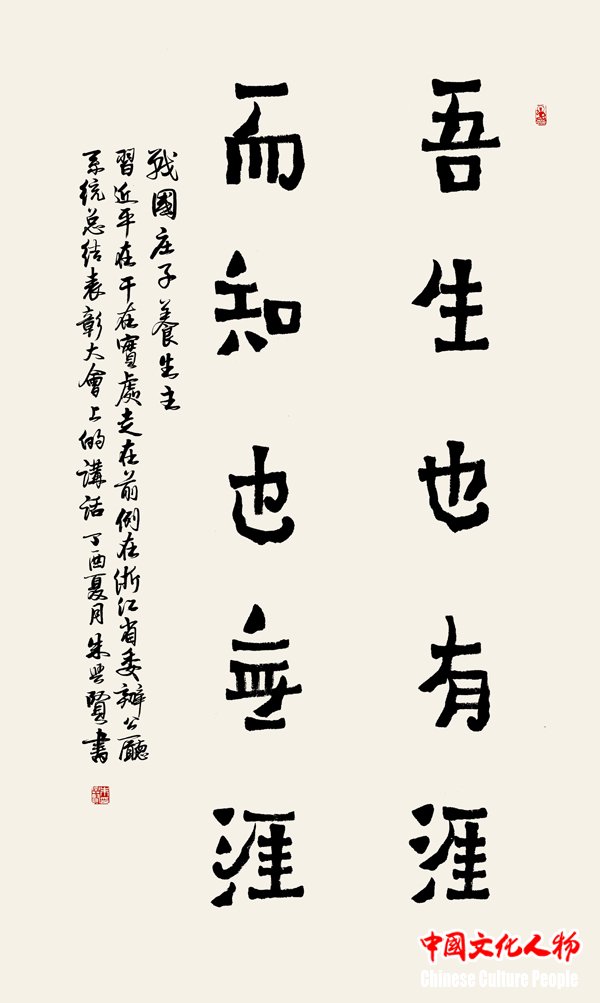 吾生也有涯
而知也無涯
戰國庄子養生主
習近平在干在實處走在前例在浙江省委辦公廳
系統总结表彰大會上的講話 丁酉夏月朱興賢書
中國文化人物
Chinese Culture People